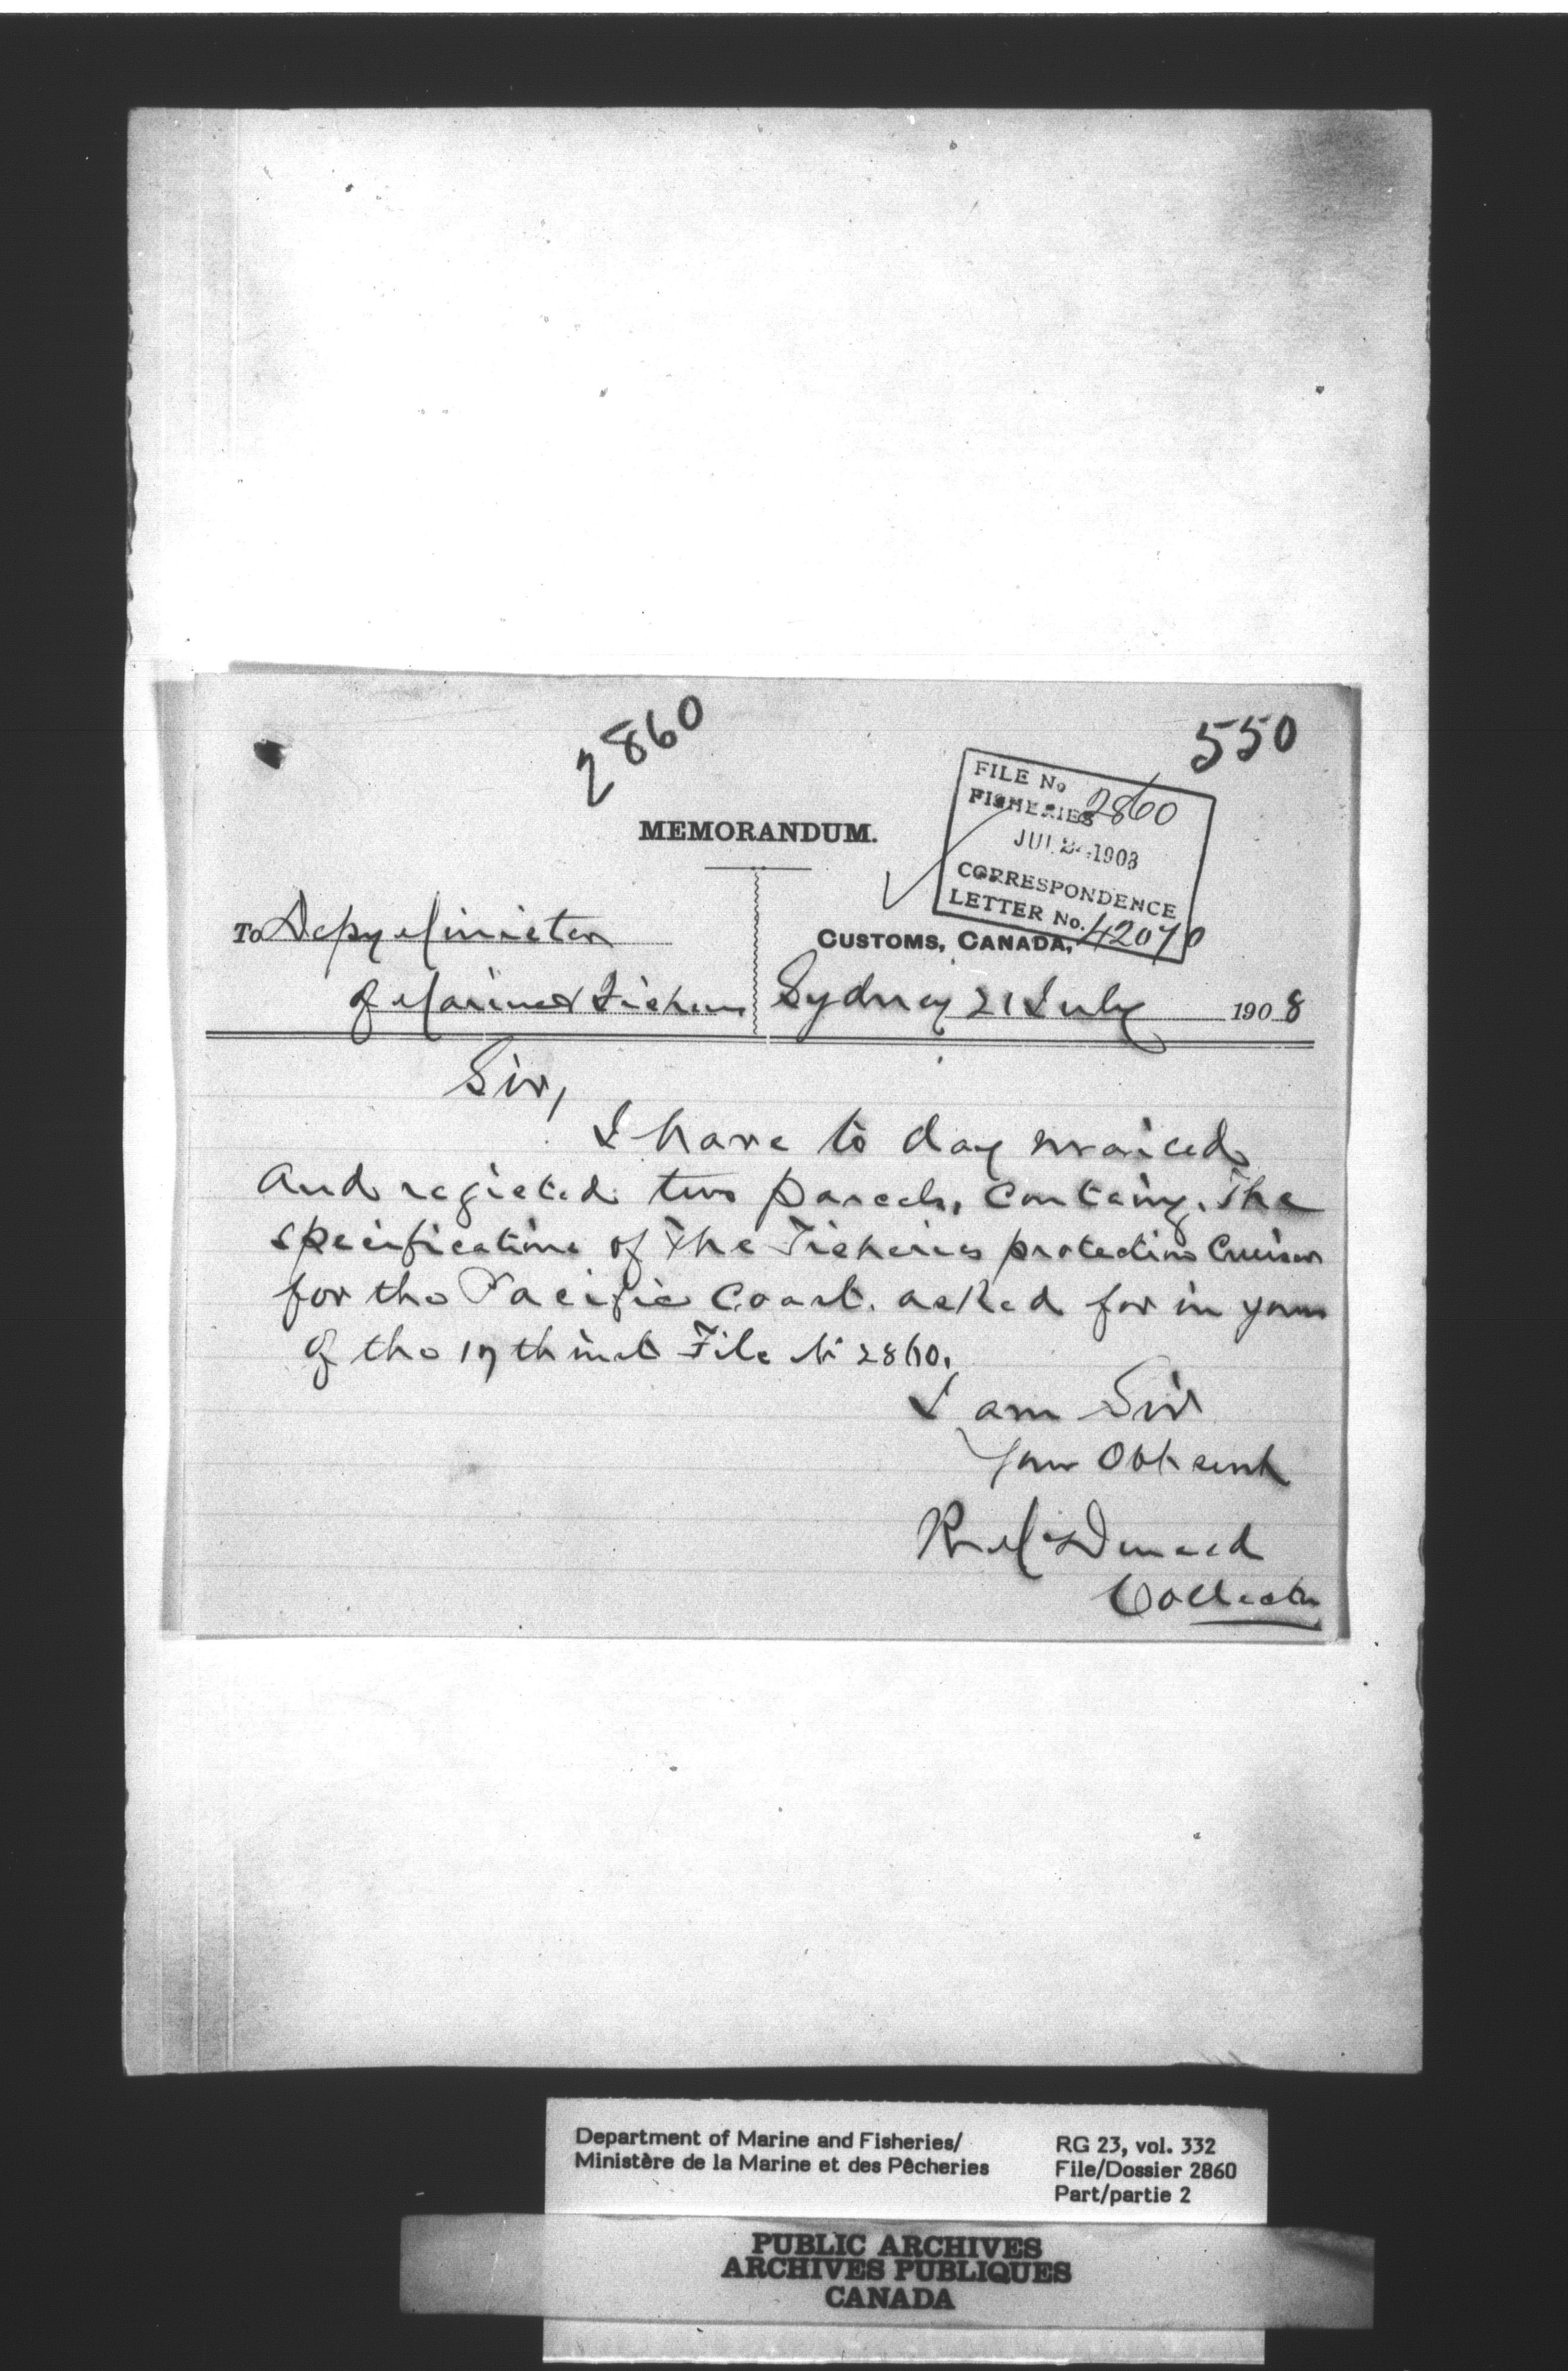 2860
550
FILE No 2860
FISHERIES
JUL 24 1908
CORRESPONDENCE
LETTER No. 42070
MEMORANDUM.
To Depy Minister
of Marine & Fisheries
CUSTOMS, CANADA,
Sydney 21 July 1908
Sir,
I have to day mailed
and registed two parcels, containg, The
specifications of The Fisheries protection Cruiser
for the Pacific Coast. asked for in yours
of the 17th inst File No 2860.
I am Sir
Your Obt servt
Collector
Department of Marine and Fisheries/
Ministère de la Marine et des Pêcheries
RG 23, vol. 332
File/Dossier 2860
Part/partie 2
PUBLIC ARCHIVES
ARCHIVES PUBLIQUES
CANADA